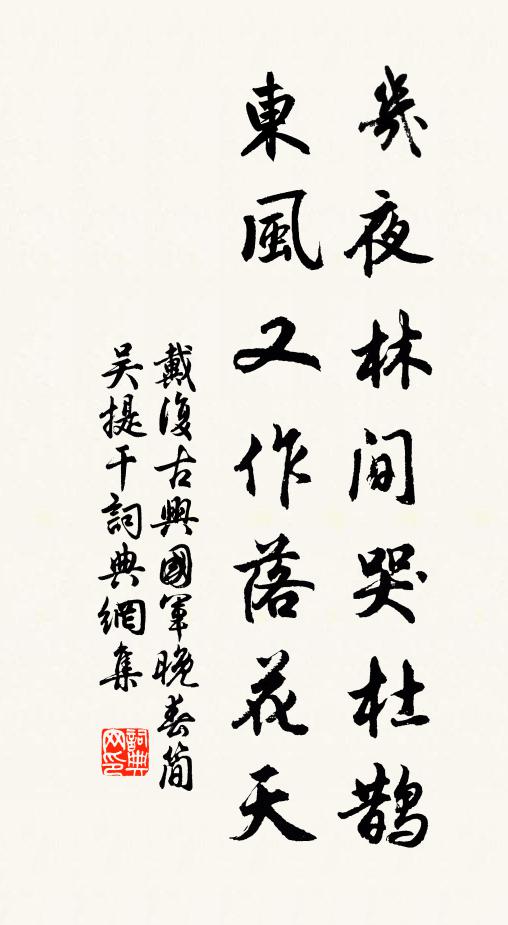 幾夜林间哭杜鹊
東風又作落花天
戴復古興國軍晚春简
吴提干詞典網集
詞典网印